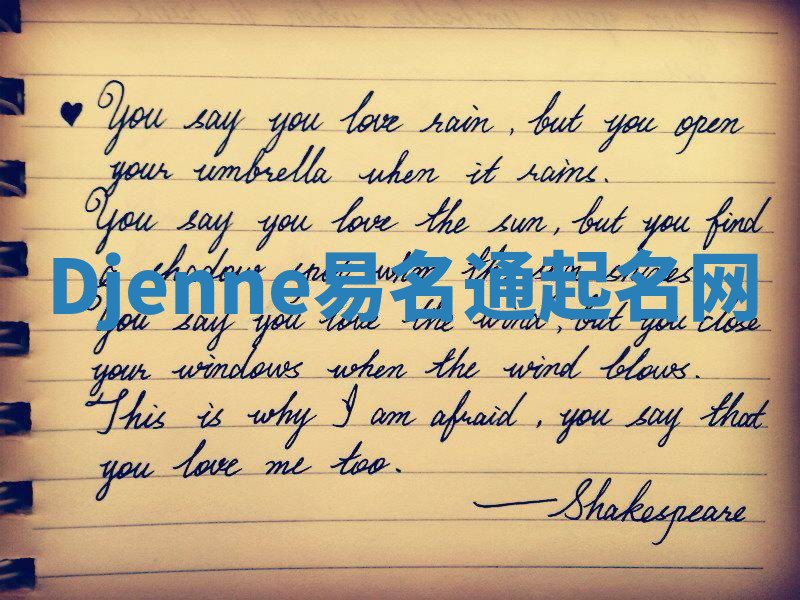 ♥ You say you love rain, but you open
your umbrella when it rains.
You say you love the sun, but you find
a shadow spot when the sun shines.
Djenne易名通起名网
You say you love the wind, but you close
your windows when the wind blows.
This is why I am afraid, you say that
you love me too.
—Shakespeare